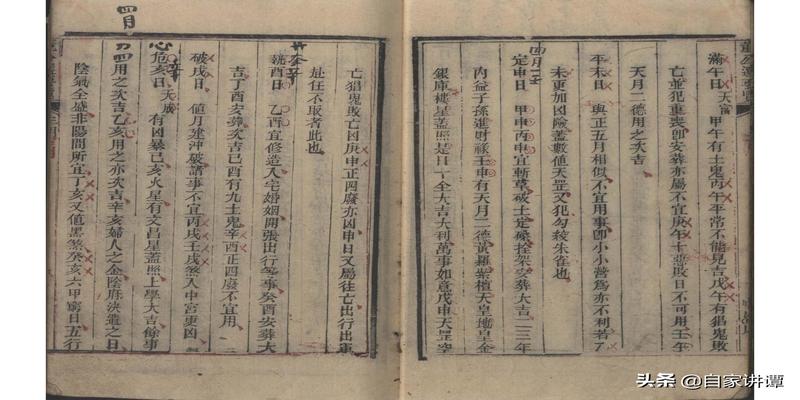 滿午日 天富 甲午有土鬼丙午平常不能見吉戊午有猖鬼敗
亡並犯重喪卽安葬亦屬不宜庚午十惡敗日不可用壬午
天月二德用之次吉
平未日 與正五月相似不宜用事卽小小營爲亦不利若
未更加凶險蓋數值天罡又犯勾絞朱雀也
定申日 甲申丙申宜斬草破土定磉拴架安葬大吉二三年
內益子孫進財祿壬申有天月二德黃羅紫檀天皇地皇金
銀庫樓星蓋照是日十全大吉大利萬事如意戊申天罡空
亡猖鬼敗亡凶庚申正四廢亦凶申日又屬往亡出行出軍
赴任不取者此也
執酉日 乙酉宜修造入宅婚姻開張出行等事癸酉安葬大
吉丁酉安葬次吉己酉有九土鬼辛酉正四廢不宜用
破戌日 值月建沖破諸事不宜丙戌壬戌煞入中宮更凶
危亥日 天成 有凶暴己亥火星有文昌星蓋照上學大吉餘事
用之次吉乙亥用之亦次吉辛亥婦人之金陰府決遣之日
陰氣全盛非陽間所宜丁亥又值黑煞癸亥六甲窮日五行
四月
头条 @自家讲谭